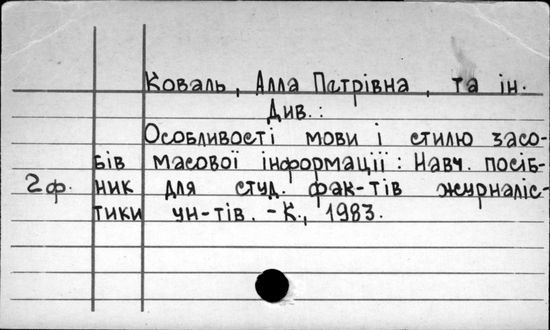 Коваль, Алла Петрівна, та ін.
Див.:
Особливості мови і стилю засо-
бів масової інформації: Навч. посіб-
2ф. ник для студ. фак-тів журналіс-
тики ун-тів. - К., 1983.